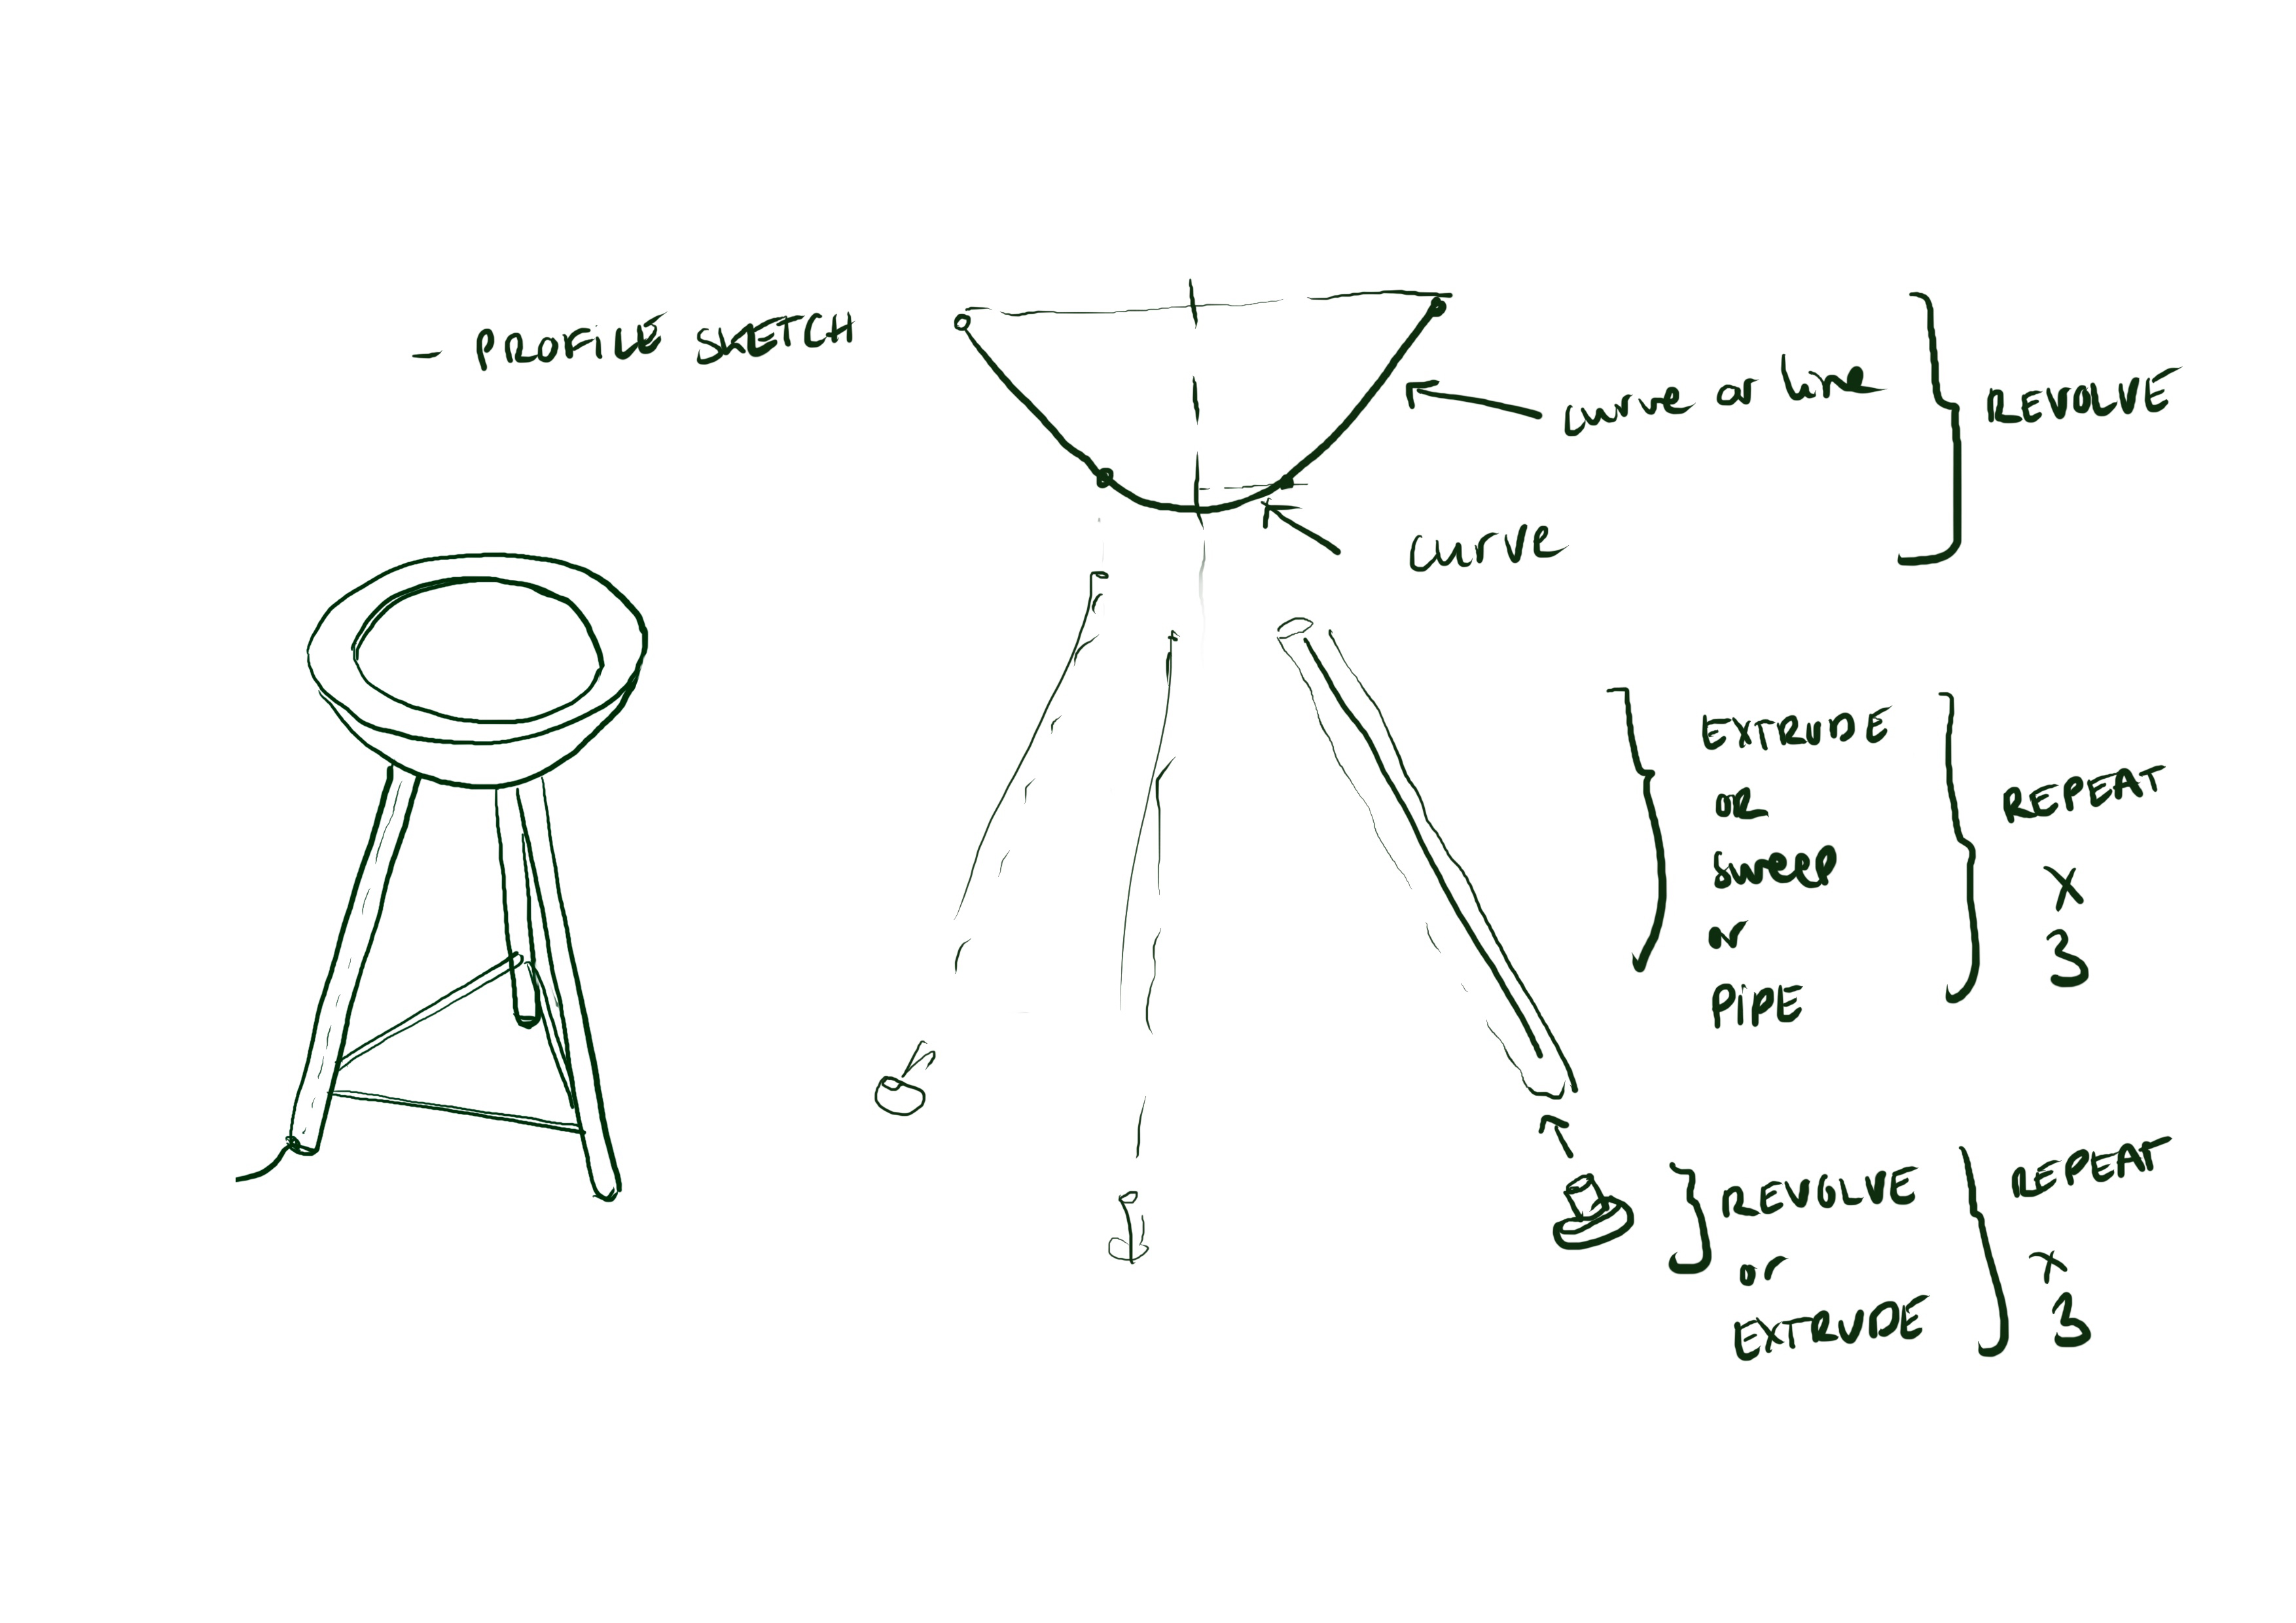 - PROFILE SKETCH
curve or line
REVOLVE
curve
EXTRUDE
OR
sweep
or
PIPE
REPEAT
X
3
REVOLVE
or
EXTRUDE
REPEAT
X
3